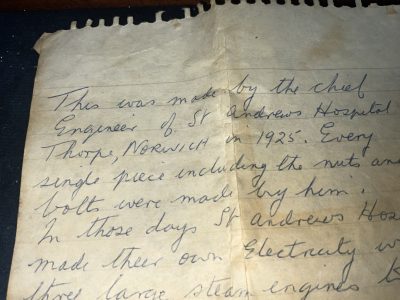 This was made by the chief
Engineer of St Andrews Hospital
Thorpe, NORWICH in 1925. Every
single piece including the nuts and
bolts were made by him.
In those days St andrews Hos
made their own Electricity w
three large steam engines